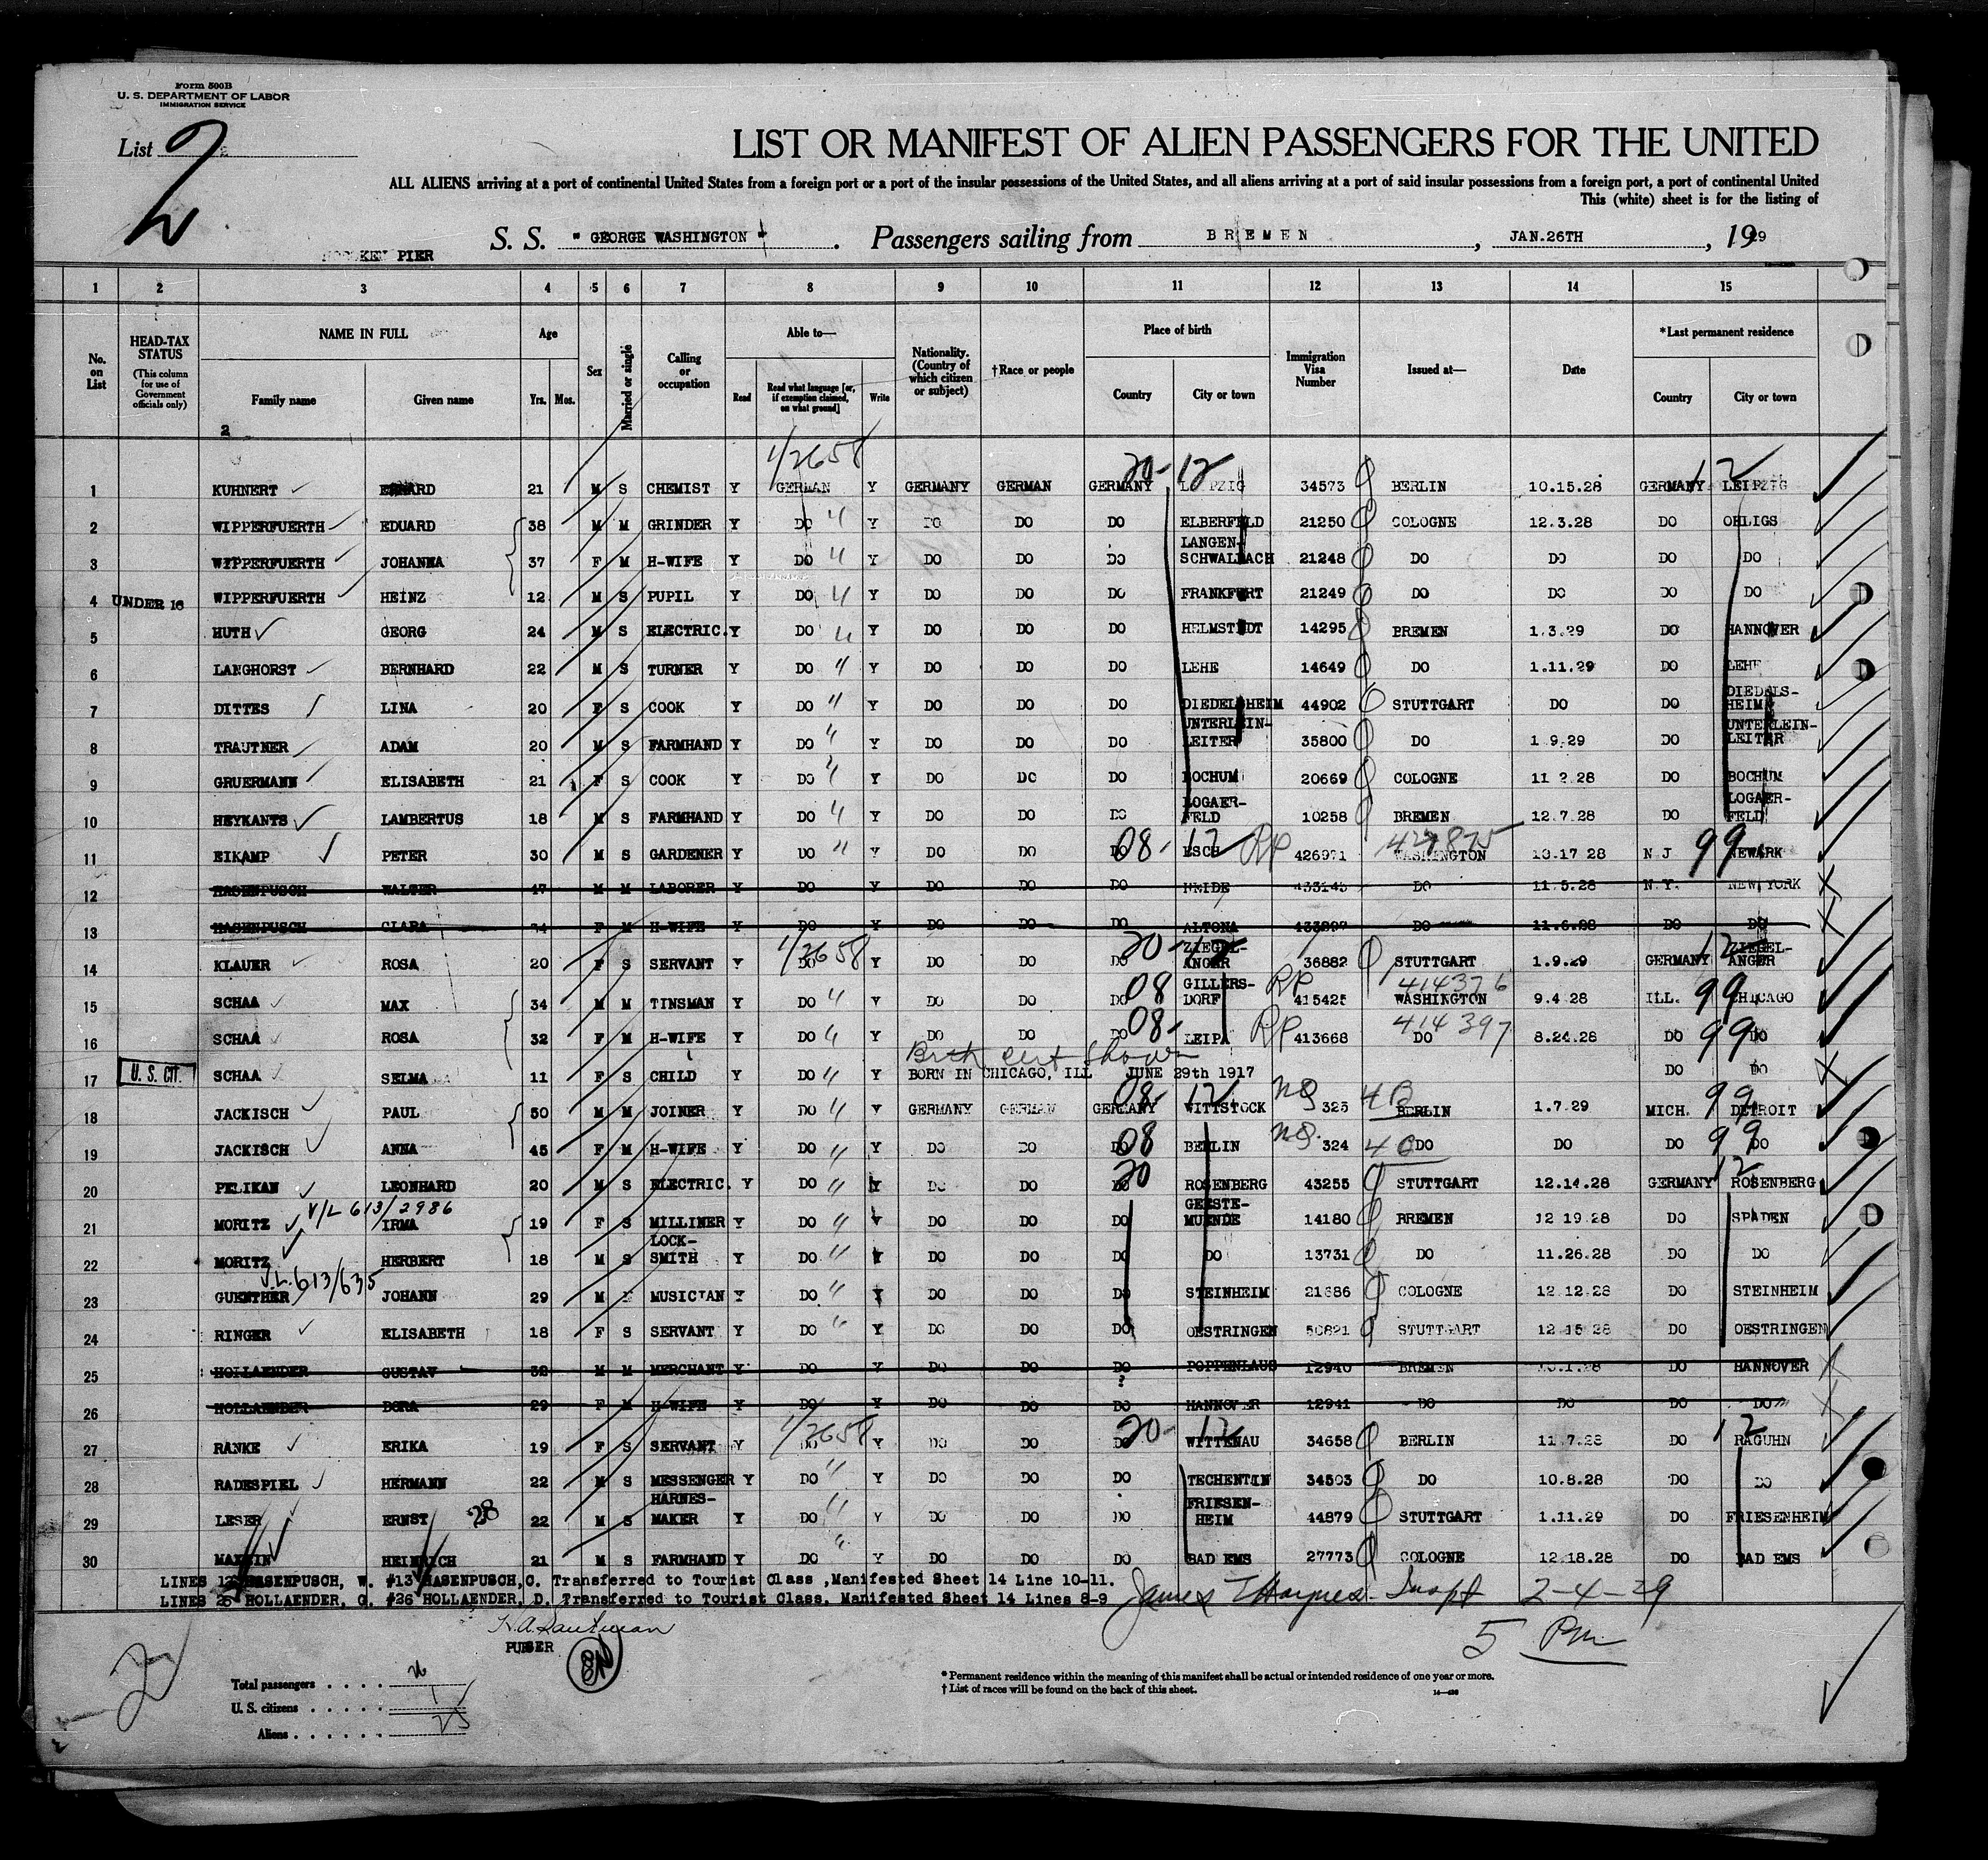 Form 500B
U. S. DEPARTMENT OF LABOR
IMMIGRATION SERVICE
List 2
LIST OR MANIFEST OF ALIEN PASSENGERS FOR THE UNITED
ALL ALIENS arriving at a port of continental United States from a foreign port or a port of the insular possessions of the United States, and all aliens arriving at a port of said insular possessions from a foreign port, a port of continental United
This (white) sheet is for the listing of
S. S. "GEORGE WASHINGTON". Passengers sailing from BREMEN, JAN.26TH, 1929
PIER
1 2 3 4 5 6 7 8 9 10 11 12 13 14 15
No. on List
HEAD-TAX STATUS (This column for use of Government officials only)
NAME IN FULL Family name Given name
Age Yrs. Mos.
Sex
Married or single
Calling or occupation
Able to— Read Read what language [or, if exemption claimed, on what ground] Write
Nationality. (Country of which citizen or subject)
†Race or people
Place of birth Country City or town
Immigration Visa Number
Issued at—
Date
*Last permanent residence Country City or town
2
1/2658 20-12 12
1 KUHNERT 21 M S CHEMIST Y GERMAN Y GERMANY GERMAN GERMANY LEIPZIG 34573 BERLIN 10.15.28 GERMANY LEIPZIG
2 WIPPERFUERTH EDUARD 38 M M GRINDER Y DO Y DO DO DO ELBERFELD 21250 COLOGNE 12.3.28 DO OHLIGS
3 WIPPERFUERTH JOHANNA 37 F M H-WIFE Y DO Y DO DO DO LANGEN-SCHWALBACH 21248 DO DO DO DO
4 UNDER 16 WIPPERFUERTH HEINZ 12 M S PUPIL Y DO Y DO DO DO FRANKFURT 21249 DO DO DO DO
5 HUTH GEORG 24 M S ELECTRIC. Y DO Y DO DO DO HELMSTEDT 14295 BREMEN 1.3.29 DO HANNOVER
6 LANGHORST BERNHARD 22 M S TURNER Y DO Y DO DO DO LEHE 14649 DO 1.11.29 DO LEHE
7 DITTES LINA 20 F S COOK Y DO Y DO DO DO DIEDELSHEIM 44902 STUTTGART DO DO DIEDELS-HEIM
8 TRAUTNER ADAM 20 M S FARMHAND Y DO Y DO DO DO UNTERLEIN-LEITER 35800 DO 1.9.29 DO UNTERLEIN-LEITER
9 GRUERMANN ELISABETH 21 F S COOK Y DO Y DO DO DO BOCHUM 20669 COLOGNE 11.2.28 DO BOCHUM
10 HEYKANTS LAMBERTUS 18 M S FARMHAND Y DO Y DO DO DO LOGAER-FELD 10258 BREMEN 12.7.28 DO LOGAER-FELD
11 EIKAMP PETER 30 M S GARDENER Y DO Y DO DO DO 08-12 ESCH RP 426971 WASHINGTON 17 28 N J 99 NEWARK
12 HASENPUSCH WALTER 47 M M LABORER Y DO Y DO DO DO HEIDE DO 11.5.28 N.Y. NEW YORK
13 HASENPUSCH CLARA 34 F M H-WIFE Y DO Y DO DO DO ALTONA DO 11.6.28 DO DO
14 KLAUER ROSA 20 F S SERVANT Y DO 1/2658 Y DO DO DO 20-12 ZIEGEL-ANGER 36882 STUTTGART 1.9.29 GERMANY 12 ZIEGEL-ANGER
15 SCHAA MAX 34 M M TINSMAN Y DO Y DO DO DO 08 GILLERS-DORF RP 415425 414376 WASHINGTON 9.4.28 ILL. 99 CHICAGO
16 SCHAA ROSA 32 F M H-WIFE Y DO Y DO DO DO 08- LEIPA RP 413668 414397 DO 8.24.28 DO 99 DO
Birth cert shown
17 U. S. CIT. SCHAA SELMA 11 F S CHILD Y DO Y BORN IN CHICAGO, ILL JUNE 29th 1917 DO DO
18 JACKISCH PAUL 50 M M JOINER Y DO Y GERMANY GERMAN GERMANY 08-12 WITTSTOCK NQ 325 4B BERLIN 1.7.29 MICH. 99 DETROIT
19 JACKISCH ANNA 45 F M H-WIFE Y DO Y DO DO DO 08 BERLIN NQ 324 4C DO DO DO 99 DO
20 PELIKAN LEONHARD 20 M S ELECTRIC. Y DO Y DO DO DO 20 ROSENBERG 43255 STUTTGART 12.14.28 GERMANY 12 ROSENBERG
V/L 613/2986
21 MORITZ IRMA 19 F S MILLINER Y DO Y DO DO DO GEESTE-MUENDE 14180 BREMEN 12 19.28 DO SPADEN
22 MORITZ HERBERT 18 M S LOCK-SMITH Y DO Y DO DO DO DO 13731 DO 11.26.28 DO DO
V.L. 613/635
23 GUENTHER JOHANN 29 M MUSICIAN Y DO Y DO DO DO STEINHEIM 21686 COLOGNE 12.12.28 DO STEINHEIM
24 RINGER ELISABETH 18 F S SERVANT Y DO Y DO DO DO OESTRINGEN 50821 STUTTGART 12.15 28 DO OESTRINGEN
25 HOLLAENDER GUSTAV 32 M M MERCHANT Y DO Y DO DO DO POPPENLAUS 12940 BREMEN DO HANNOVER
?
26 HOLLAENDER DORA 29 F M H-WIFE Y DO Y DO DO DO HANNOVER 12941 DO DO DO DO
27 RANKE ERIKA 19 F S SERVANT Y DO 1/2658 Y DO DO DO 20-12 WITTENAU 34658 BERLIN 11.7.28 DO 12 RAGUHN
28 RADESPIEL HERMANN 22 M S MESSENGER Y DO Y DO DO DO TECHENTIN 34503 DO 10.8.28 DO DO
29 LESER ERNST 28 22 M S HARNES-MAKER Y DO Y DO DO DO FRIESEN-HEIM 44879 STUTTGART 1.11.29 DO FRIESENHEIM
30 HEINRICH 21 M S FARMHAND Y DO Y DO DO DO BAD EMS 27773 COLOGNE 12.18.28 DO BAD EMS
LINES 12 HASENPUSCH, W. #13 HASENPUSCH,C. Transferred to Tourist Class ,Manifested Sheet 14 Line 10-11.
LINES 25 HOLLAENDER, G. #26 HOLLAENDER, D. Transferred to Tourist Class, Manifested Sheet 14 Lines 8-9
James 2-4-29
5 Pm
PURSER
Total passengers . . . . 26
U. S. citizens . . . . . 1
Aliens . . . . . . 25
* Permanent residence within the meaning of this manifest shall be actual or intended residence of one year or more.
† List of races will be found on the back of this sheet.